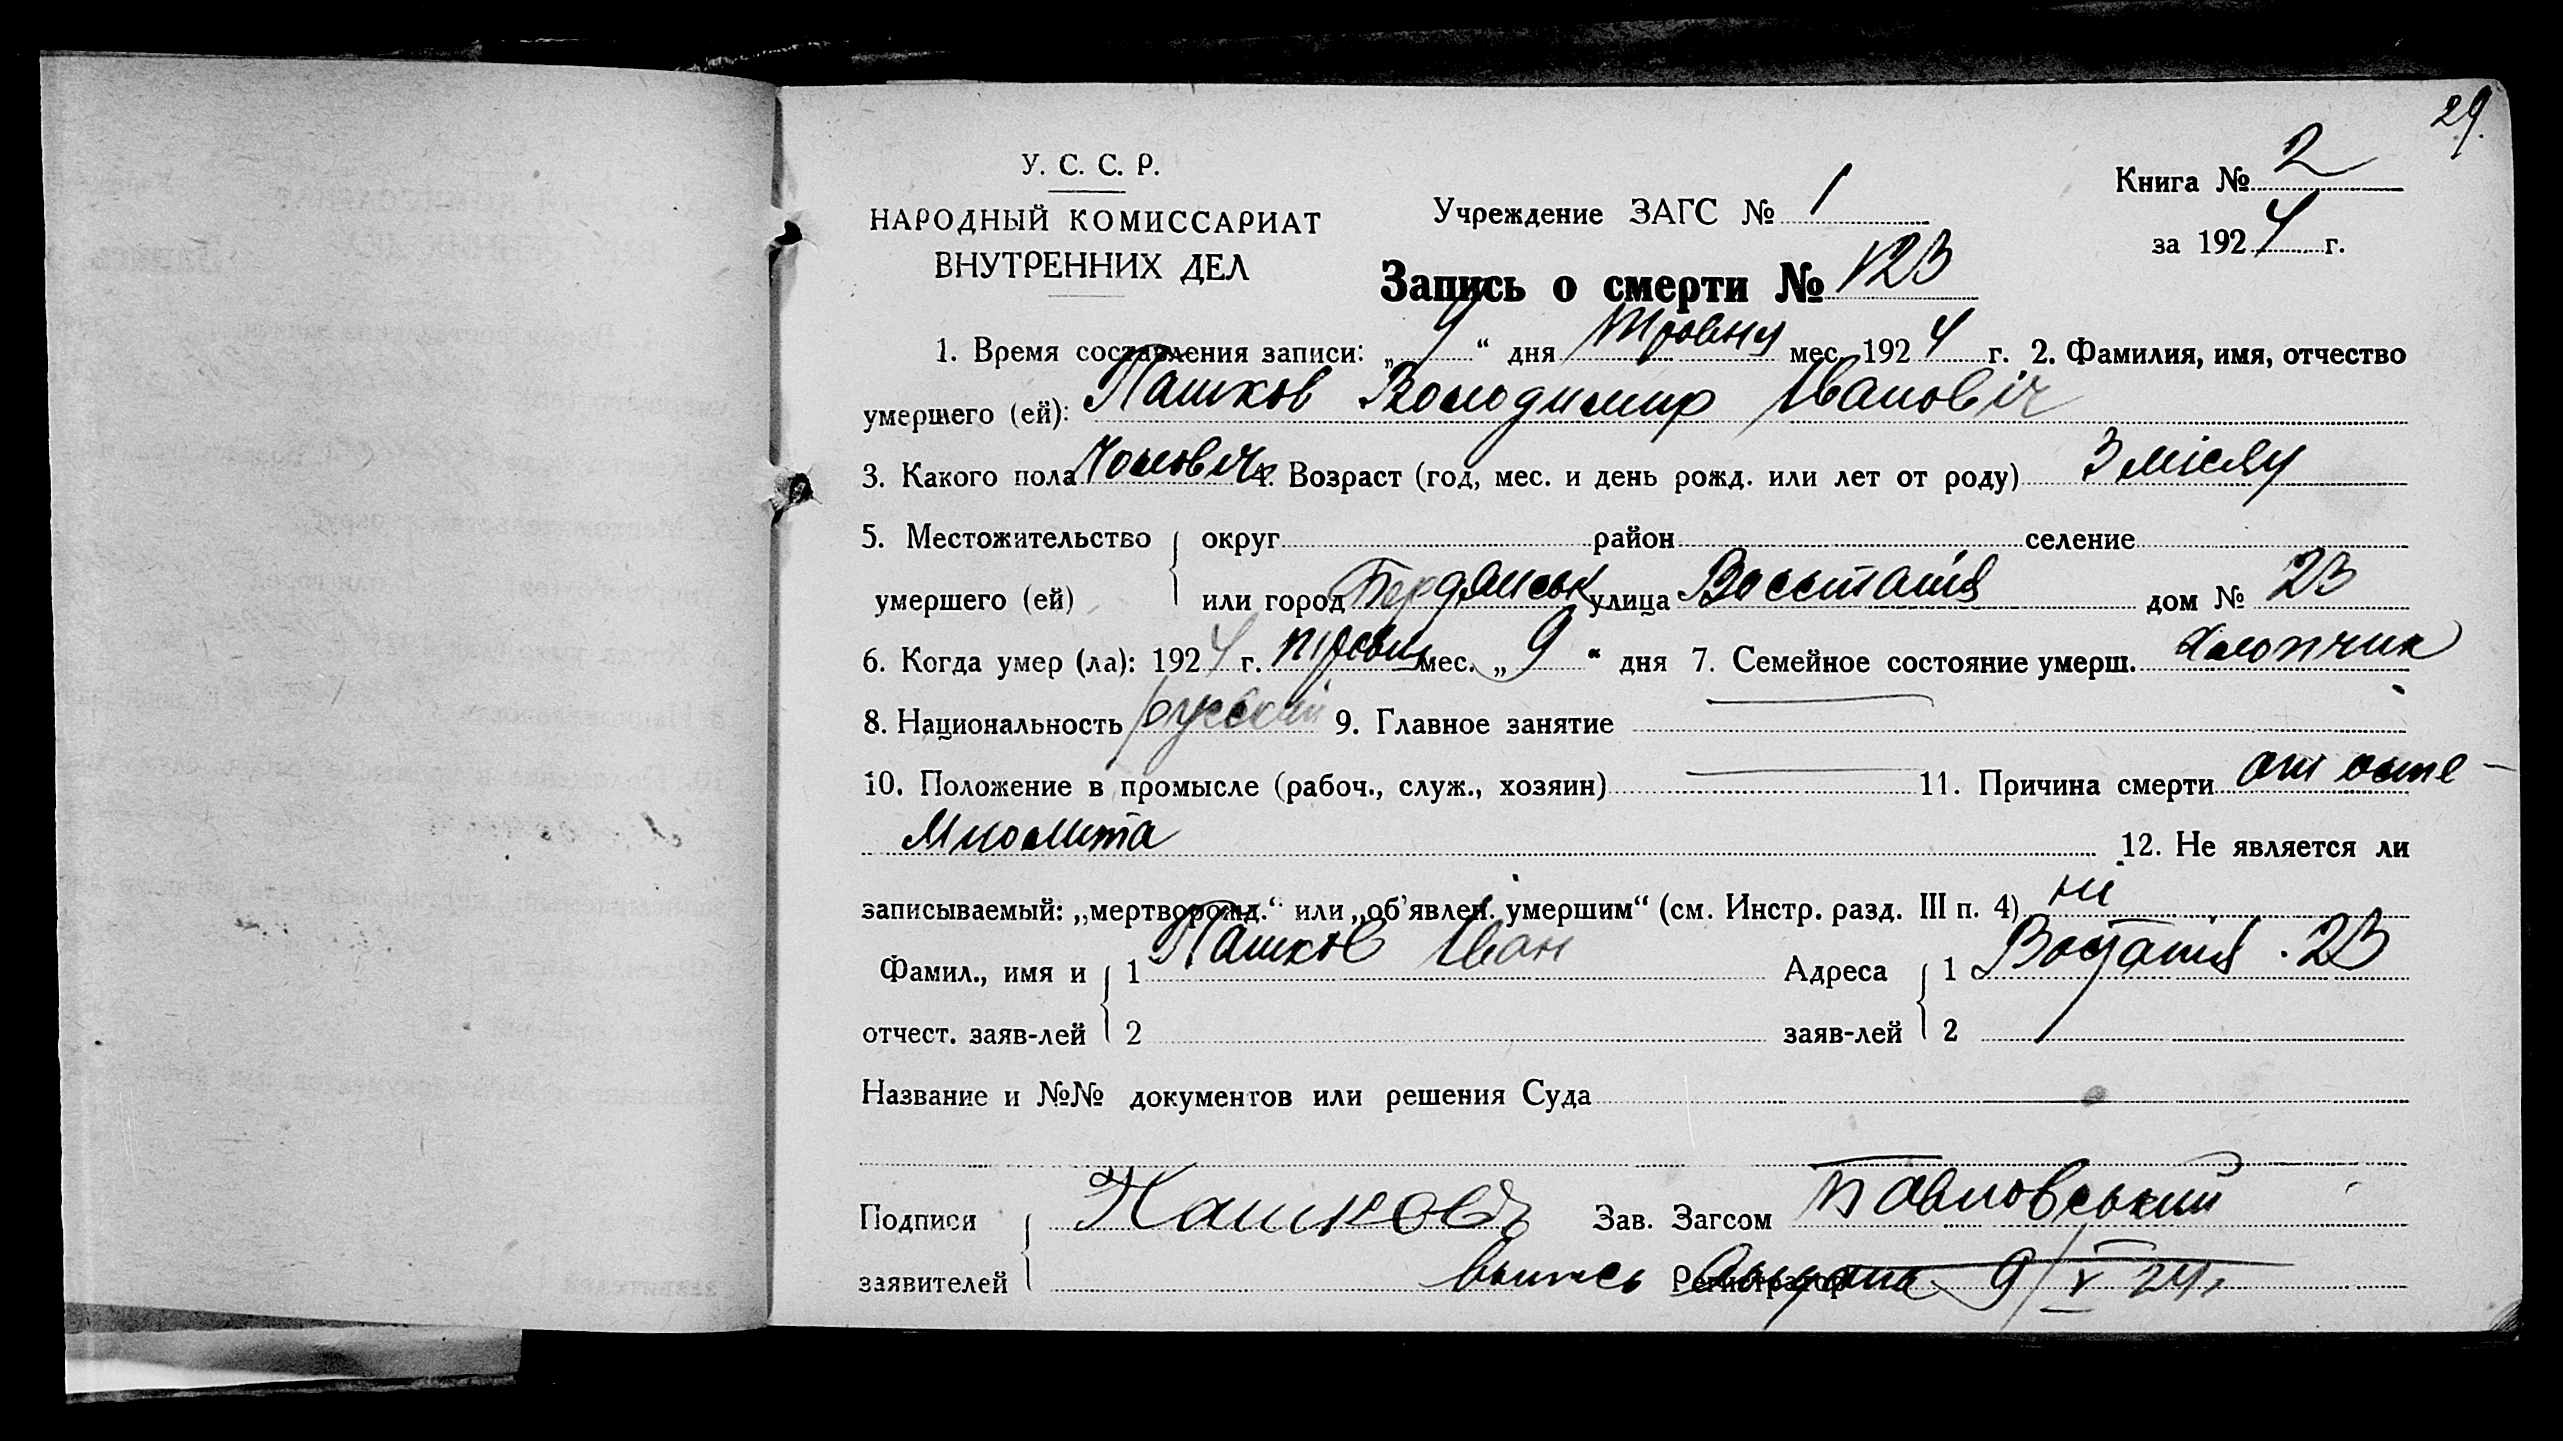 29.
У. С. С. Р.
НАРОДНЫЙ КОМИССАРИАТ
ВНУТРЕННИХ ДЕЛ
Учреждение ЗАГС № 1
Книга № 2
за 1924 г.
Запись о смерти № 123
1. Время составления записи: „9“ дня Травня мес. 1924 г. 2. Фамилия, имя, отчество
умершего (ей): Пашков Володимир Івановіч
3. Какого пола Чоловіч. 4. Возраст (год, мес. и день рожд. или лет от роду) 3 місяц
5. Местожительство округ район селение
умершего (ей) или город Бердянськ улица Восстанія дом № 23
6. Когда умер (ла): 1924 г. травн мес. „9“ дня 7. Семейное состояние умерш. хлопчик
8. Национальность руський 9. Главное занятие —
10. Положение в промысле (рабоч., служ., хозяин) — 11. Причина смерти от осте-
12. Не является ли
записываемый: „мертворожд.“ или „об’явлен. умершим“ (см. Инстр. разд. III п. 4) ні
Фамил., имя и 1 Пашков Іван Адреса 1 Востанія. 23
отчест. заяв-лей 2 заяв-лей 2
Название и №№ документов или решения Суда
Подписи Пашковъ Зав. Загсом Павловський
заявителей выпись Регистратор 9/V 24 г.